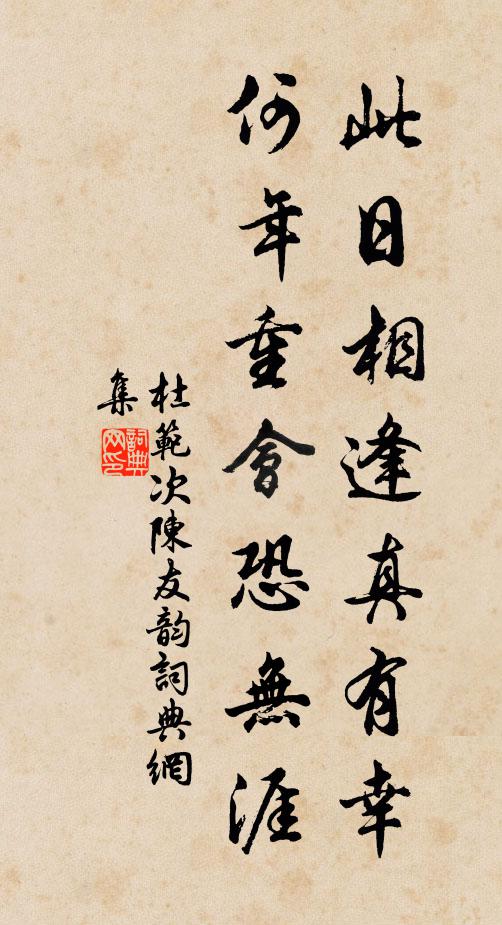 此日相逢真有幸
何年重會恐無涯
杜範次陳友韵詞典網
集
詞典
网印